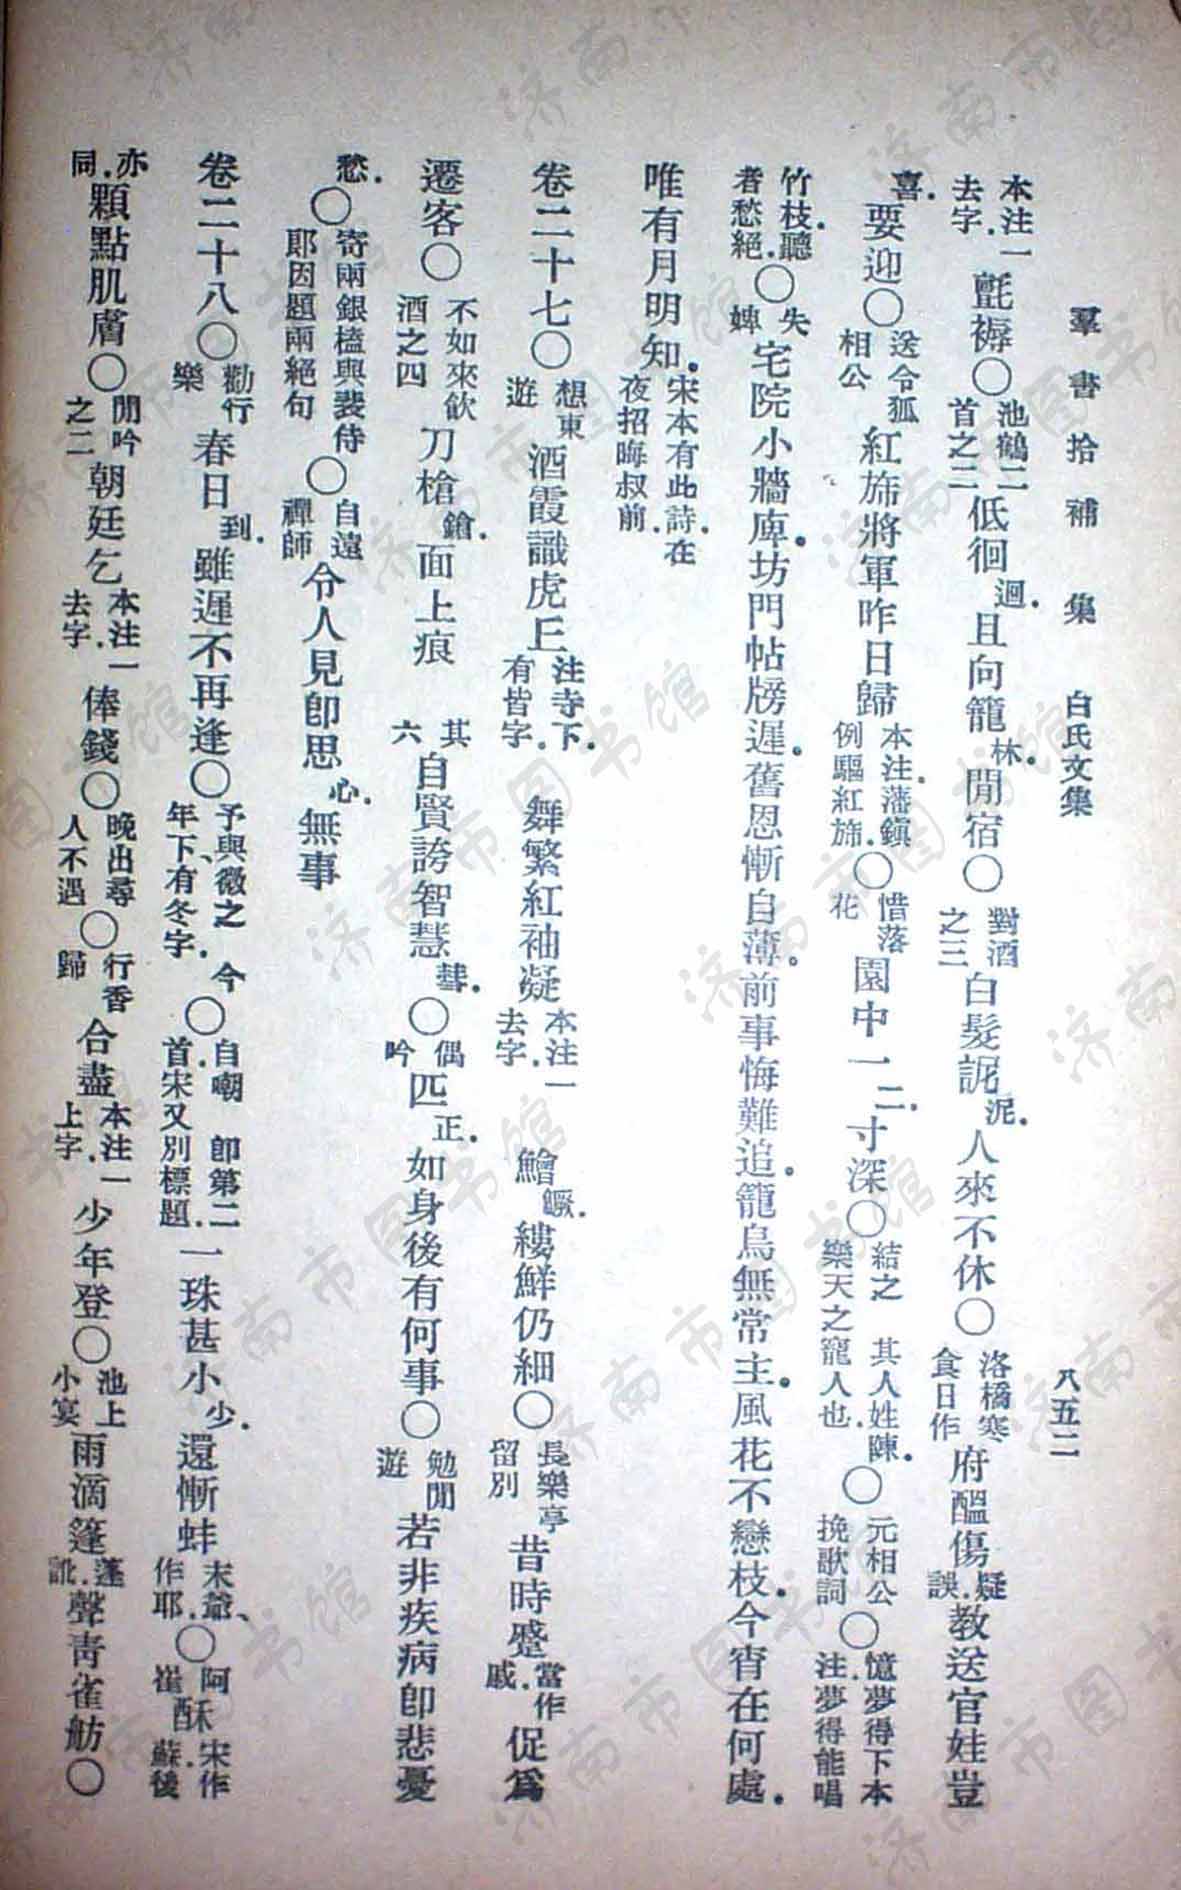 羣書拾補 集 白氏文集 八五二
本注一去字．氈褥○池鶴二首之二低徊迴．且向籠林．閒宿○對酒之三白髮誽泥．人來不休○洛橋寒食日作府醞傷疑誤．教送官娃豈
喜．要迎○送令狐相公紅旆將軍昨日歸本注．藩鎮例驅紅旆．○惜落花園中一二．寸深○結之 其人姓陳．樂天之寵人也．○元相公挽歌詞○憶夢得下本注．夢得能唱
竹枝．聽者愁絕．○失婢宅院小牆庳．坊門帖牓遲．舊恩慚自薄．前事悔難追．籠鳥無常主．風花不戀枝．今宵在何處．
唯有月明知．宋本有此詩．在夜招晦叔前．
卷二十七○想東遊酒霞識虎丘注寺下．有皆字．舞繁紅袖凝本注一去字．鱠鱖．縷鮮仍細○長樂亭留別昔時蹙當作戚．促爲
遷客○不如來飲酒之四刀槍鎗．面上痕 其六自賢誇智慧彗．○偶吟匹正．如身後有何事○勉閒遊若非疾病卽悲憂
愁．○寄兩銀榼與裴侍郞因題兩絕句○自遠禪師令人見卽思心．無事
卷二十八○勸行樂春日到．雖遲不再逢○予與微之 今年下、有冬字．○自嘲 卽第二首．宋又別標題．一珠甚小少．還慚蚌末爺、作耶．○阿崔酥宋作蘇．後
亦同．顆點肌膚○閒吟之二朝廷乞本注一去字．俸錢○晚出尋人不遇○行香歸合盡本注一上字．少年登○池上小宴雨滴篷蓬訛．聲靑雀舫○